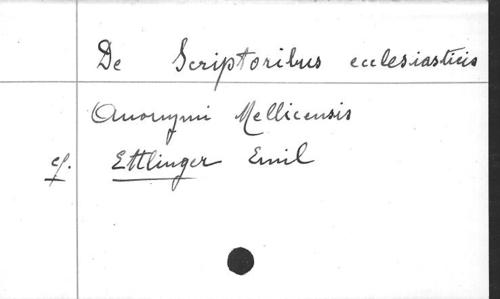 De Scriptoribus ecclesiasticis
Anonymi Mellicensis
cf. Ettlinger Emil